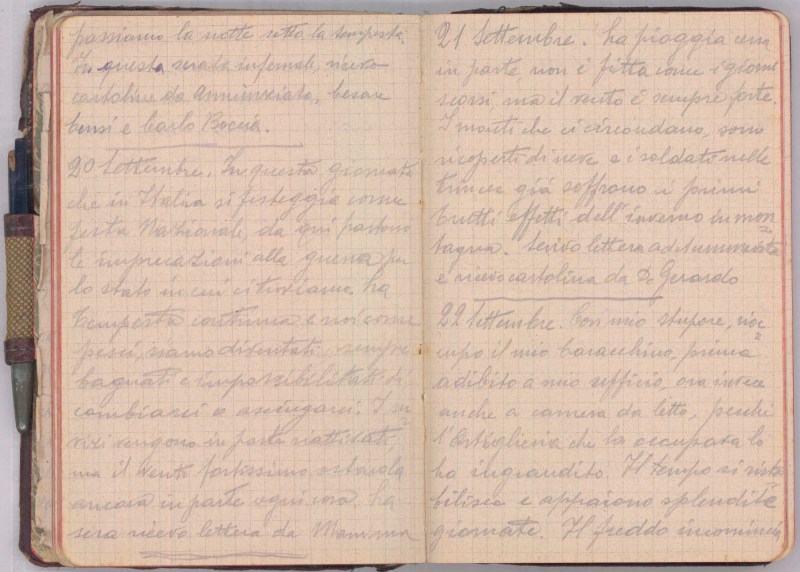 passiamo la notte sotto la tempesta.
In questa serata infernale, ricevo
cartoline da Annunziata, Cesare
Censi e Carlo Boccia.
20 Settembre. In questa giornata
che in Italia si festeggia come
festa Nazionale, da qui partono
le imprecazioni alla guerra per
lo stato in cui ci troviamo. La
tempesta continua e noi come
pesci, siamo diventati sempre
bagnati e impossibilitati di
cambiarci o asciugarci. I ser=
vizi vengono in parte riattivati,
ma il vento fortissimo ostacola
ancora in parte ogni cosa. La
sera ricevo lettera da Mamma
21 Settembre. La pioggia cessa
in parte non è fitta come i giorni
scorsi, ma il vento è sempre forte.
I monti che ci circondano, sono
ricoperti di neve e i soldati nelle
trincee già soffrono i primi
brutti effetti dell'inverno in mon=
tagna. Scrivo lettera ad Annunziata
e ricevo cartolina da Dn Gerardo
22 Settembre. Con mio stupore, rioc=
cupo il mio baracchino, prima
adibito a mio ufficio, ora invece
anche a camera da letto, perchè
l'Artiglieria che la occupava lo
ha ingrandito. Il tempo si rista=
bilisce e appaiono splendide
giornate. Il freddo incomincia